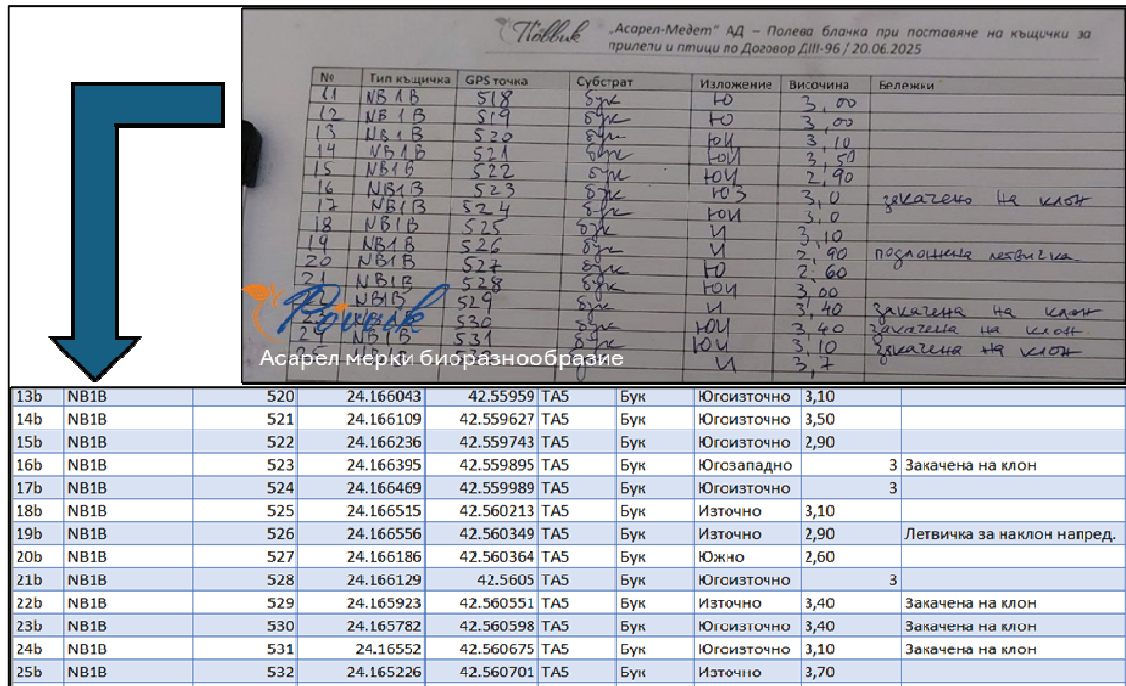 Поввик „Асарел-Медет“ АД – Полева бланка при поставяне на къщички за
прилепи и птици по Договор ДIII-96 / 20.06.2025
№ Тип къщичка GPS точка Субстрат Изложение Височина Бележки
11 NB1B 518 бук Ю 3,00
12 NB1B 519 бук Ю 3,00
13 NB1B 520 бук ЮИ 3,10
14 NB1B 521 бук ЮИ 3,50
15 NB1B 522 бук ЮИ 2,90
16 NB1B 523 бук ЮЗ 3,0 закачено на клон
17 NB1B 524 бук ЮИ 3,0
18 NB1B 525 бук И 3,10
19 NB1B 526 бук И 2,90 летвичка
20 NB1B 527 бук Ю 2.60
21 NB1B 528 бук ЮИ 3,00
22 NB1B 529 бук И 3,40 закачена на клон
23 530 бук ЮИ 3,40 закачена на клон
24 NB1B 531 бук ЮИ 3,10 закачена на клон
И 3,7
Povvik
Асарел мерки биоразнообразие
13b NB1B 520 24.166043 42.55959 TA5 Бук Югоизточно 3,10
14b NB1B 521 24.166109 42.559627 TA5 Бук Югоизточно 3,50
15b NB1B 522 24.166236 42.559743 TA5 Бук Югоизточно 2,90
16b NB1B 523 24.166395 42.559895 TA5 Бук Югозападно 3 Закачена на клон
17b NB1B 524 24.166469 42.559989 TA5 Бук Югоизточно 3
18b NB1B 525 24.166515 42.560213 TA5 Бук Източно 3,10
19b NB1B 526 24.166556 42.560349 TA5 Бук Източно 2,90 Летвичка за наклон напред.
20b NB1B 527 24.166186 42.560364 TA5 Бук Южно 2,60
21b NB1B 528 24.166129 42.5605 TA5 Бук Югоизточно 3
22b NB1B 529 24.165923 42.560551 TA5 Бук Източно 3,40 Закачена на клон
23b NB1B 530 24.165782 42.560598 TA5 Бук Югоизточно 3,40 Закачена на клон
24b NB1B 531 24.16552 42.560675 TA5 Бук Югоизточно 3,10 Закачена на клон
25b NB1B 532 24.165226 42.560701 TA5 Бук Източно 3,70